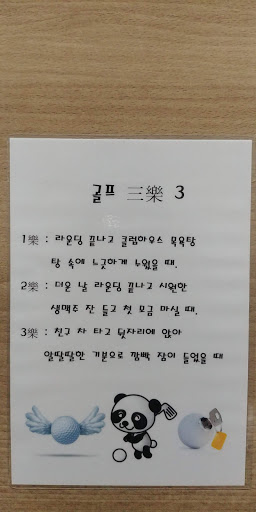 골프 三樂 3
1樂 : 라운딩 끝나고 클럽하우스 목욕탕
탕 속에 느긋하게 누웠을 때.
2樂 : 더운 날 라운딩 끝나고 시원한
생맥주 잔 들고 첫 모금 마실 때.
3樂 : 친구 차 타고 뒷자리에 앉아
알딸딸한 기분으로 깜빡 잠이 들었을 때